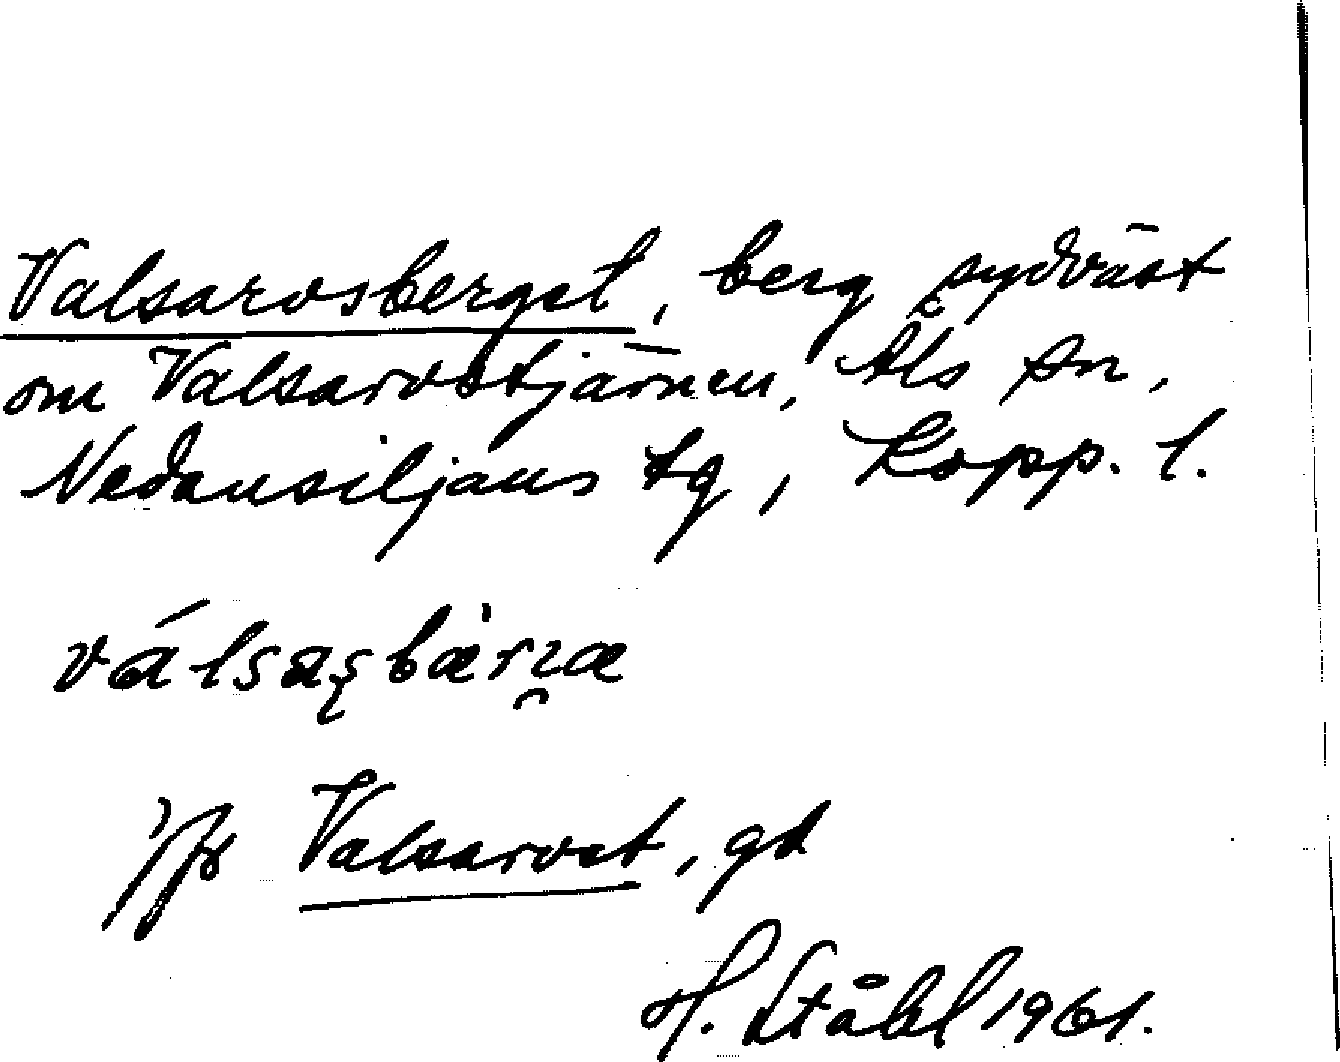 Valsarvsberget, berg sydväst
om Valsarvstjärnen, Als sn,
Nedansiljans tg, Kopp. l.
jfr Valsarvet, gd
H. Ståhl 1961.